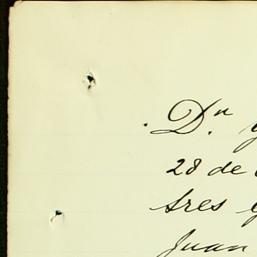 Dn
28 de
tres
Juan